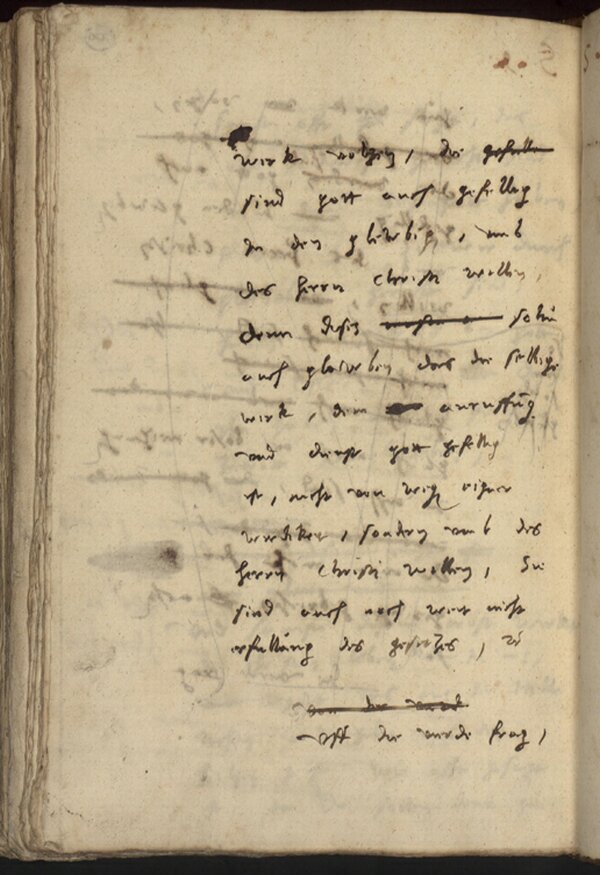 werk volgen, die gefalle
sind gott auch gefellig
in den glewbigen, umb
des herrn Christi willen,
denn diesen sollen
auch glewben das die selbige
werk, dem anruffung
und dienst gott gefellig
ist, nicht von wegen eigner
wirdikeit, sondern umb des
herrn Christi willen, Sie
sind auch noch weit nicht
erfullung des gesetzes,
von der
Uff die vierde frag,